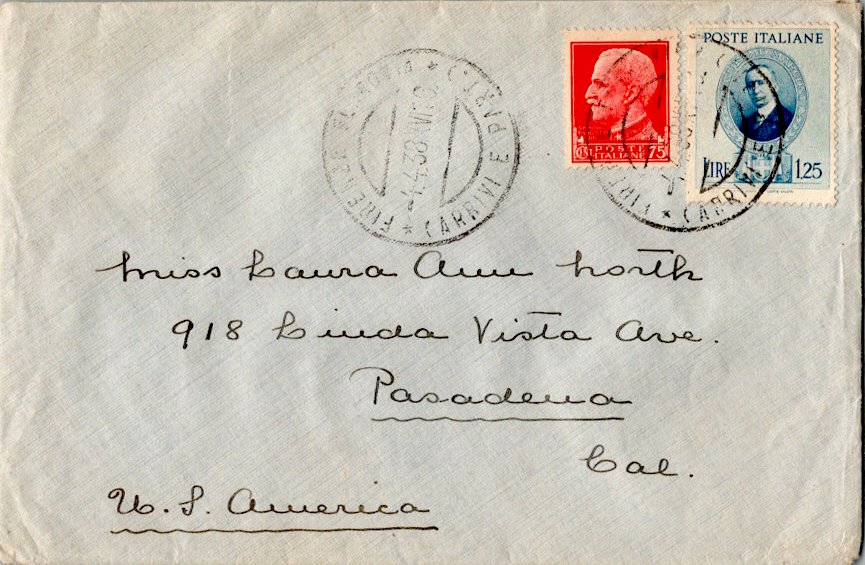 FIRENZE FERROVIA * (ARRIVI E PART.) *
4.4.38 XVI
POSTE ITALIANE
POSTE
ITALIANE
75
LIRE 1,25
Miss Laura Ann North
918 Linda Vista Ave.
Pasadena
Cal.
U. S. America